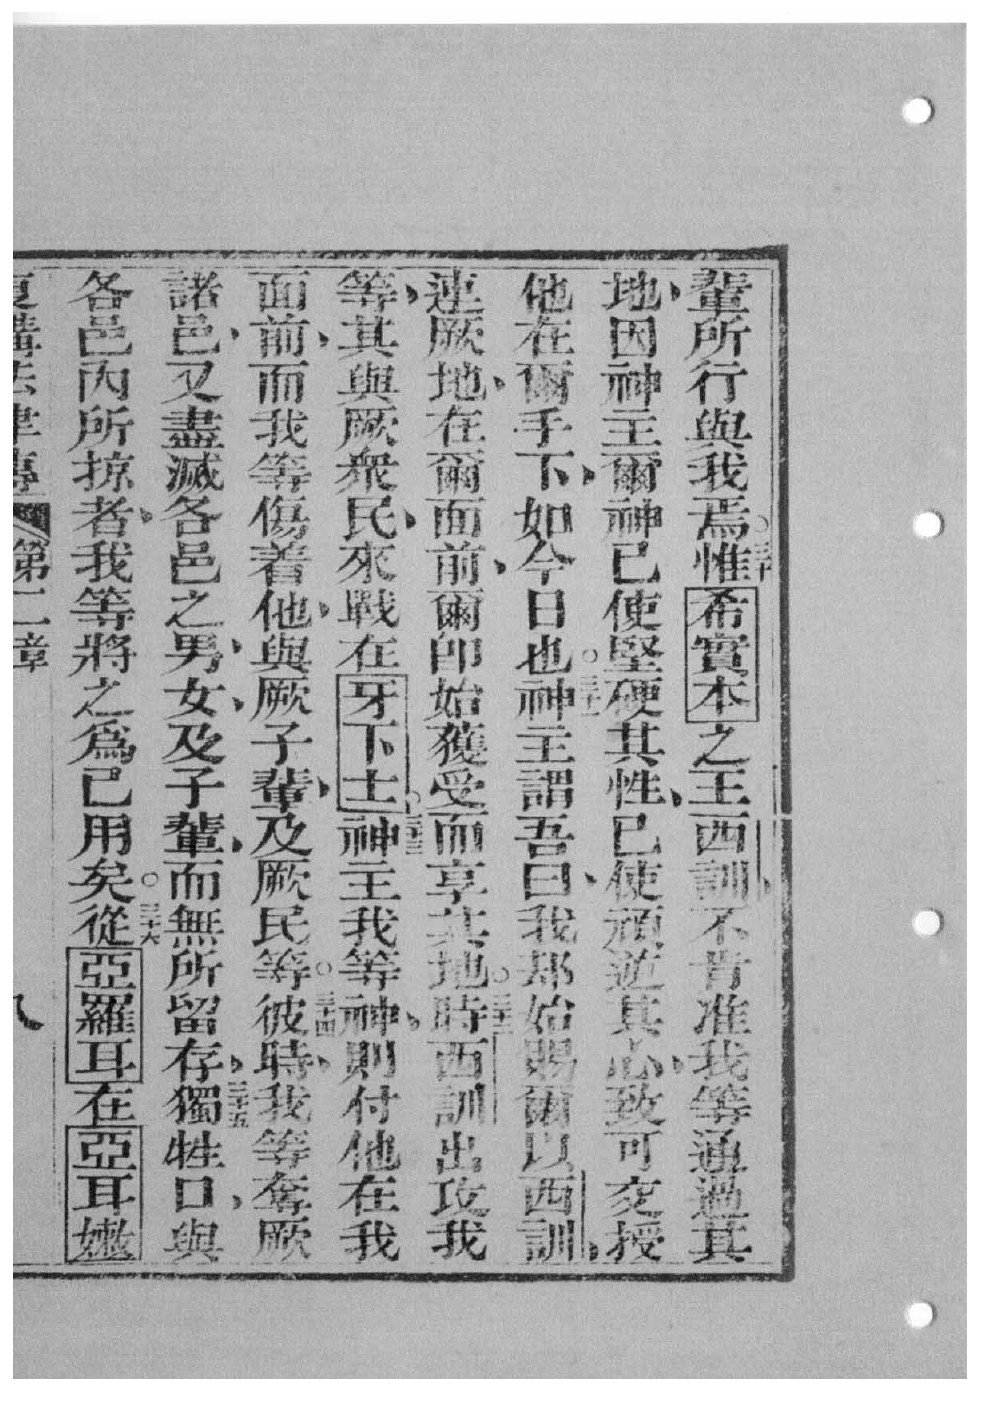 輩所行與我焉○三十惟希實本之王西訓不肯准我等通過其
地、因神主爾神已使堅硬其性、已使頑逆其心、致可交授
他在爾手下、如今日也○三十一神主謂吾曰、我却始賜爾以西訓、
連厥地、在爾面前、爾即始獲受而享其地○三十二時西訓出攻我
等、其與厥衆民、來戰在牙下士○三十三神主我等神、則付他在我
面前、而我等傷着他、與厥子輩、及厥民等○三十四彼時、我等奪厥
諸邑、又盡滅各邑之男、女、及子輩、而無所留存、三十五獨牲口、與
各邑內所掠者、我等將之為已用矣○三十六從亞羅耳在亞耳嫩
復講法律傳 第二章 八